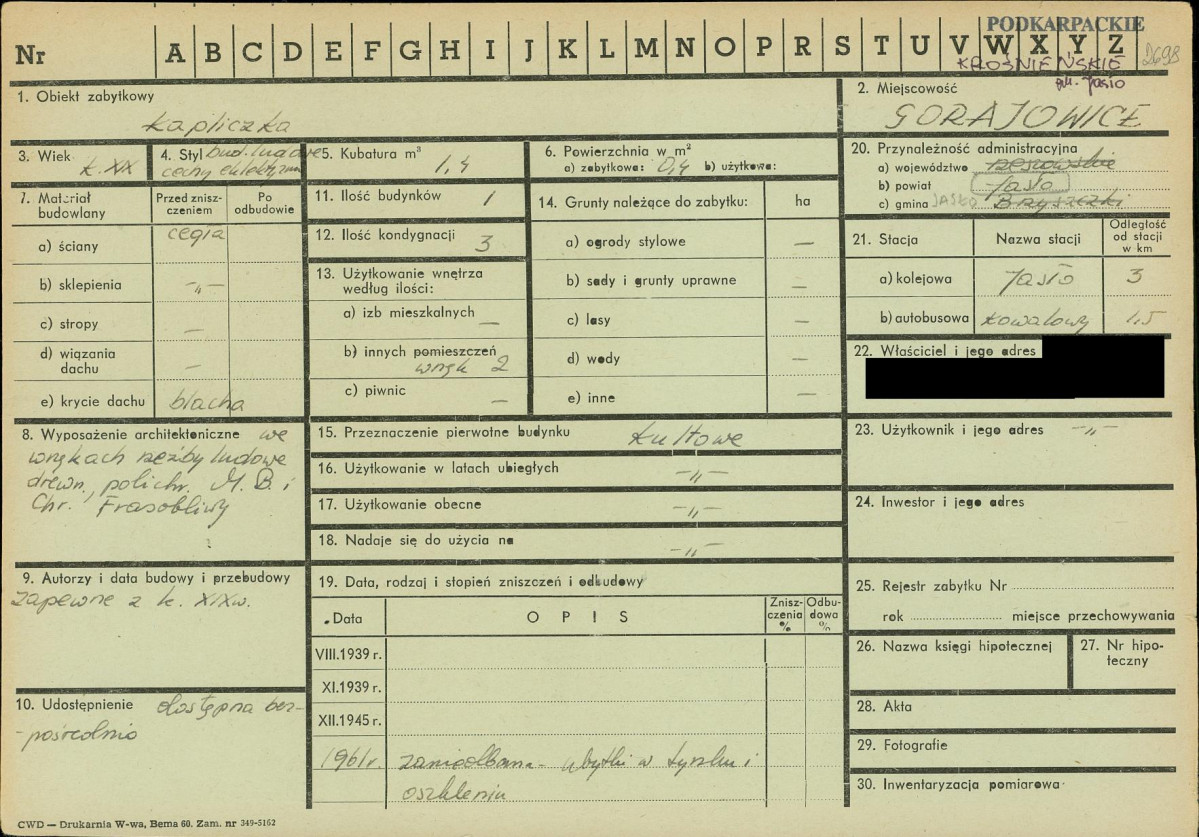 Nr A B C D E F G H I J K L M N O P R S T U V W X Y Z
PODKARPACKIE
KROŚNIEŃSKIE
2698
1. Obiekt zabytkowy
kapliczka
2. Miejscowość
GORAJOWICE
3. Wiek k. XIX
4. Styl bud. ludowe
cechy eklektyzmu
5. Kubatura m³
1,4
6. Powierzchnia w m²
a) zabytkowa: 0,4 b) użytkowa:
20. Przynależność administracyjna
a) województwo rzeszowskie
b) powiat Jasło
c) gmina JASŁO Bryszczki
7. Materiał budowlany
Przed zniszczeniem
Po odbudowie
a) ściany cegła
b) sklepienia -„-
c) stropy —
d) wiązania dachu —
e) krycie dachu blacha
11. Ilość budynków 1
12. Ilość kondygnacji 3
13. Użytkowanie wnętrza według ilości:
a) izb mieszkalnych —
b) innych pomieszczeń
wnęk 2
c) piwnic —
14. Grunty należące do zabytku: ha
a) ogrody stylowe —
b) sady i grunty uprawne —
c) lasy —
d) wody —
e) inne —
21. Stacja Nazwa stacji Odległość od stacji w km
a) kolejowa Jasło 3
b) autobusowa Kowalowy 1,5
22. Właściciel i jego adres
8. Wyposażenie architektoniczne we
wnękach rzeźby ludowe
drewn., polichr. M. B. i
Chr. Frasobliwy
15. Przeznaczenie pierwotne budynku kultowe
16. Użytkowanie w latach ubiegłych -„-
17. Użytkowanie obecne -„-
18. Nadaje się do użycia na -„-
23. Użytkownik i jego adres -„-
24. Inwestor i jego adres
9. Autorzy i data budowy i przebudowy
zapewne z k. XIXw.
19. Data, rodzaj i stopień zniszczeń i odbudowy
Data OPIS Zniszczenia % Odbudowa %
VIII.1939 r.
XI.1939 r.
XII.1945 r.
1961r. zaniedbana - ubytki w tynku i
oszkleniu
25. Rejestr zabytku Nr
rok miejsce przechowywania
26. Nazwa księgi hipotecznej
27. Nr hipoteczny
10. Udostępnienie dostępna bez-
-pośrednio
28. Akta
29. Fotografie
30. Inwentaryzacja pomiarowa
CWD — Drukarnia W-wa, Bema 60. Zam. nr 349-5162